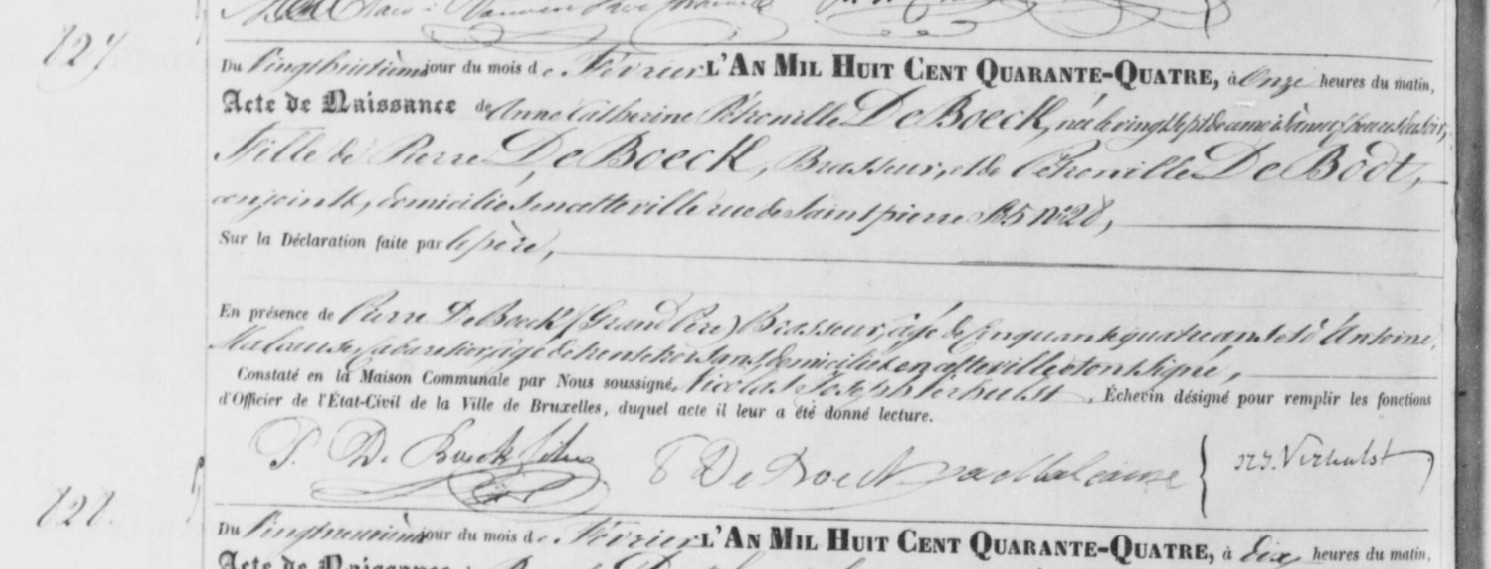 827
Du vingthuitième jour du mois de Février L'AN MIL HUIT CENT QUARANTE-QUATRE, à Onze heures du matin,
Acte de Naissance de Anne Catherine Pétronille De Boeck, née le vingt sept de ce mois à heures du soir,
Fille de Pierre De Boeck, Brasseur, et de Pétronille De Bodt,
conjoints, domiciliés en cette ville rue de Saint pierre S.5 n° 28,
Sur la Déclaration faite par le père,
En présence de Pierre De Boeck (Grand Père) Brasseur, âgé de Cinquante quatre ans et d'Antoine
Malcause, cabaretier, âgé de trente trois ans, domiciliés en cette ville et ont Signé,
Constaté en la Maison Communale par Nous soussigné, Nicolas Joseph Verhulst, Échevin désigné pour remplir les fonctions
d'Officier de l'État-Civil de la Ville de Bruxelles, duquel acte il leur a été donné lecture.
P. De Boeck filius P De Boeck Malcause NJ. Verhulst
828.
Du jour du mois de Février L'AN MIL HUIT CENT QUARANTE-QUATRE, à Dix heures du matin,
Acte de Naissance